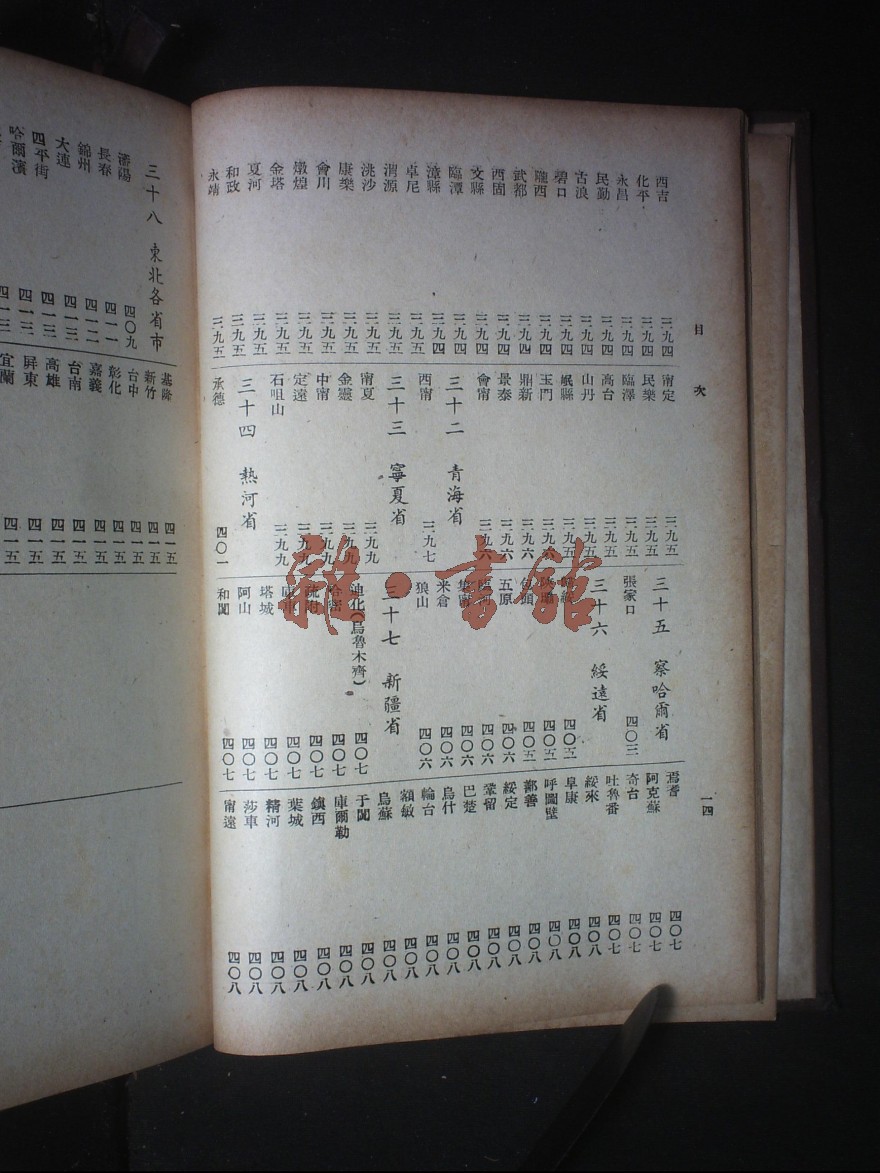 目次
一四
西吉 三九四
化平 三九四
永昌 三九四
民勤 三九四
古浪 三九四
碧口 三九四
隴西 三九四
武都 三九四
西固 三九四
文縣 三九四
臨潭 三九四
漳縣 三九四
卓尼 三九五
渭源 三九五
洮沙 三九五
康樂 三九五
會川 三九五
燉煌 三九五
金塔 三九五
夏河 三九五
和政 三九五
永靖 三九五
甯定 三九五
民樂 三九五
臨澤 三九五
高台 三九五
山丹 三九五
岷縣 三九五
玉門 三九六
鼎新 三九六
景泰 三九六
會甯 三九六
三十二 青海省
西甯 三九七
三十三 寧夏省
甯夏 三九九
金靈 三九九
中甯 三九九
定遠 三九九
石咀山 三九九
三十四 熱河省
承德 四〇一
三十五 察哈爾省
張家口 四〇三
三十六 綏遠省
歸綏 四〇五
陝壩 四〇五
包頭 四〇五
五原 四〇六
臨河 四〇六
集甯 四〇六
米倉 四〇六
狼山 四〇六
三十七 新疆省
迪化(烏魯木齊) 四〇七
哈密 四〇七
疏附 四〇七
庫車 四〇七
塔城 四〇七
阿山 四〇七
和闐 四〇七
焉耆 四〇七
阿克蘇 四〇七
奇台 四〇七
吐魯番 四〇七
綏來 四〇八
阜康 四〇八
呼圖壁 四〇八
鄯善 四〇八
綏定 四〇八
鞏留 四〇八
巴楚 四〇八
烏什 四〇八
輪台 四〇八
額敏 四〇八
烏蘇 四〇八
于闐 四〇八
庫爾勒 四〇八
鎮西 四〇八
葉城 四〇八
精河 四〇八
莎車 四〇八
甯遠 四〇八
雜·書館
三十八 東北各省市
瀋陽 四〇九
長春 四一一
錦州 四一二
大連 四一三
四平街 四一三
哈爾濱 四一三
四一三
基隆 四一五
新竹 四一五
台中 四一五
彰化 四一五
嘉義 四一五
台南 四一五
高雄 四一五
屏東 四一五
宜蘭 四一五